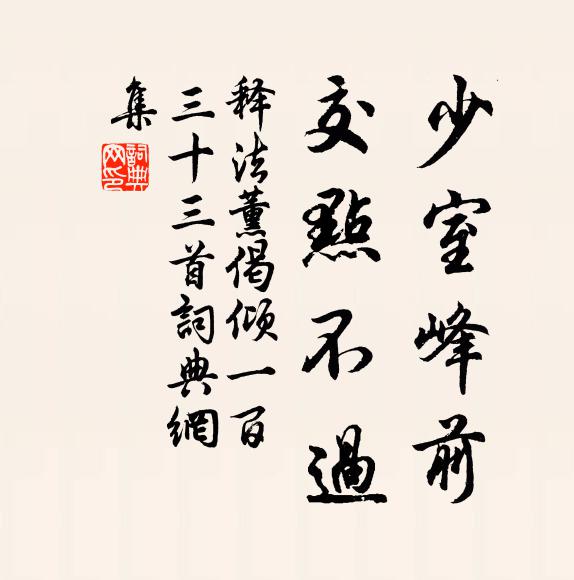 少室峰前
交點不過
释法薰偈倾一百
三十三首詞典網
集
詞典網印